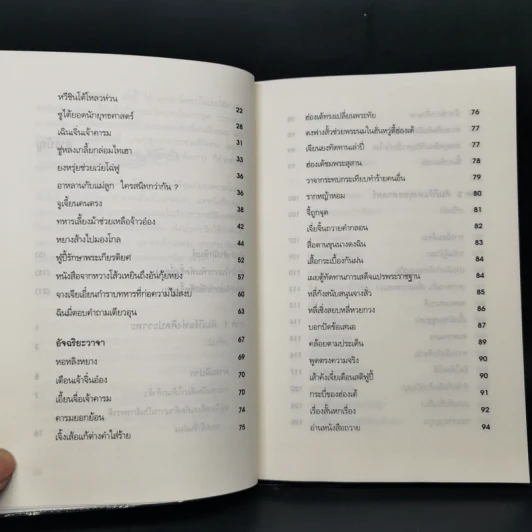 หวีซินโต้โหลวห่วน
ซูไต้ยอดนักยุทธศาสตร์ 22
เฉินเจินเจ้าคารม 28
ซู่หลงเกลี้ยกล่อมไทเฮา 31
ยงหรุ่ยช่วยเว่ยโฉ่ฟู 33
อาหลานกับแม่ลูก ใครสนิทกว่ากัน ? 36
จูเจี้ยนคนตรง 36
ทหารเลี้ยงม้าช่วยเหลือจ้าวอ๋อง 38
หยางส้างไปมองโกล 42
ฟูปี้รักษาพระเกียรติยศ 44
หนังสือจากหวางโส้วเหยินถึงอันกุ้ยหยง 52
จางเจียเยี้ยนกำราบทหารที่ก่อความไม่สงบ 60
ฉินมี่ตอบคำถามเตียวอุน 63
อัจฉริยะวาจา 67
หอหลิงหยาง 70
เตือนเจ้าจิ้นอ๋อง 70
เอี้ยนจื่อเจ้าคารม 70
คารมยอกย้อน 74
เจิ้งเส้อแก้ต่างคำใส่ร้าย 75
ฮ่องเต้ทรงเปลี่ยนพระทัย 76
ตงฟางสั้วช่วยพระนมในฮั่นหวู่ตี้ฮ่องเต้ 77
เจียนยงทัดทานเล่าปี่ 77
ฮ่องเต้ชมพระสุสาน 78
วาจากระทบกระเทียบทำร้ายคนอื่น 79
รากหญ้าหอม 80
จี้ถูกจุด 81
เจี่ยจิ้นถวายคำกลอน 82
สื่อตานขุนนางตงฉิน 83
เสื้อกระเบื้องกันฝน 84
เผยตู้ทัดทานการเสด็จแปรพระราชฐาน 84
หลี่กังสนับสนุนจางสั้ว 85
หลี่เซิ่งสยบหลี่หวยกวง 87
บอกปัดข้อเสนอ 87
คล้อยตามประเด็น 88
พูดตรงความจริง 89
เส้าคังเจี๋ยเตือนสติฟูปี้ 90
กระบี่ของฮ่องเต้ 91
เรื่องสั้นหกเรื่อง 92
อ่านหนังสือถวาย 94